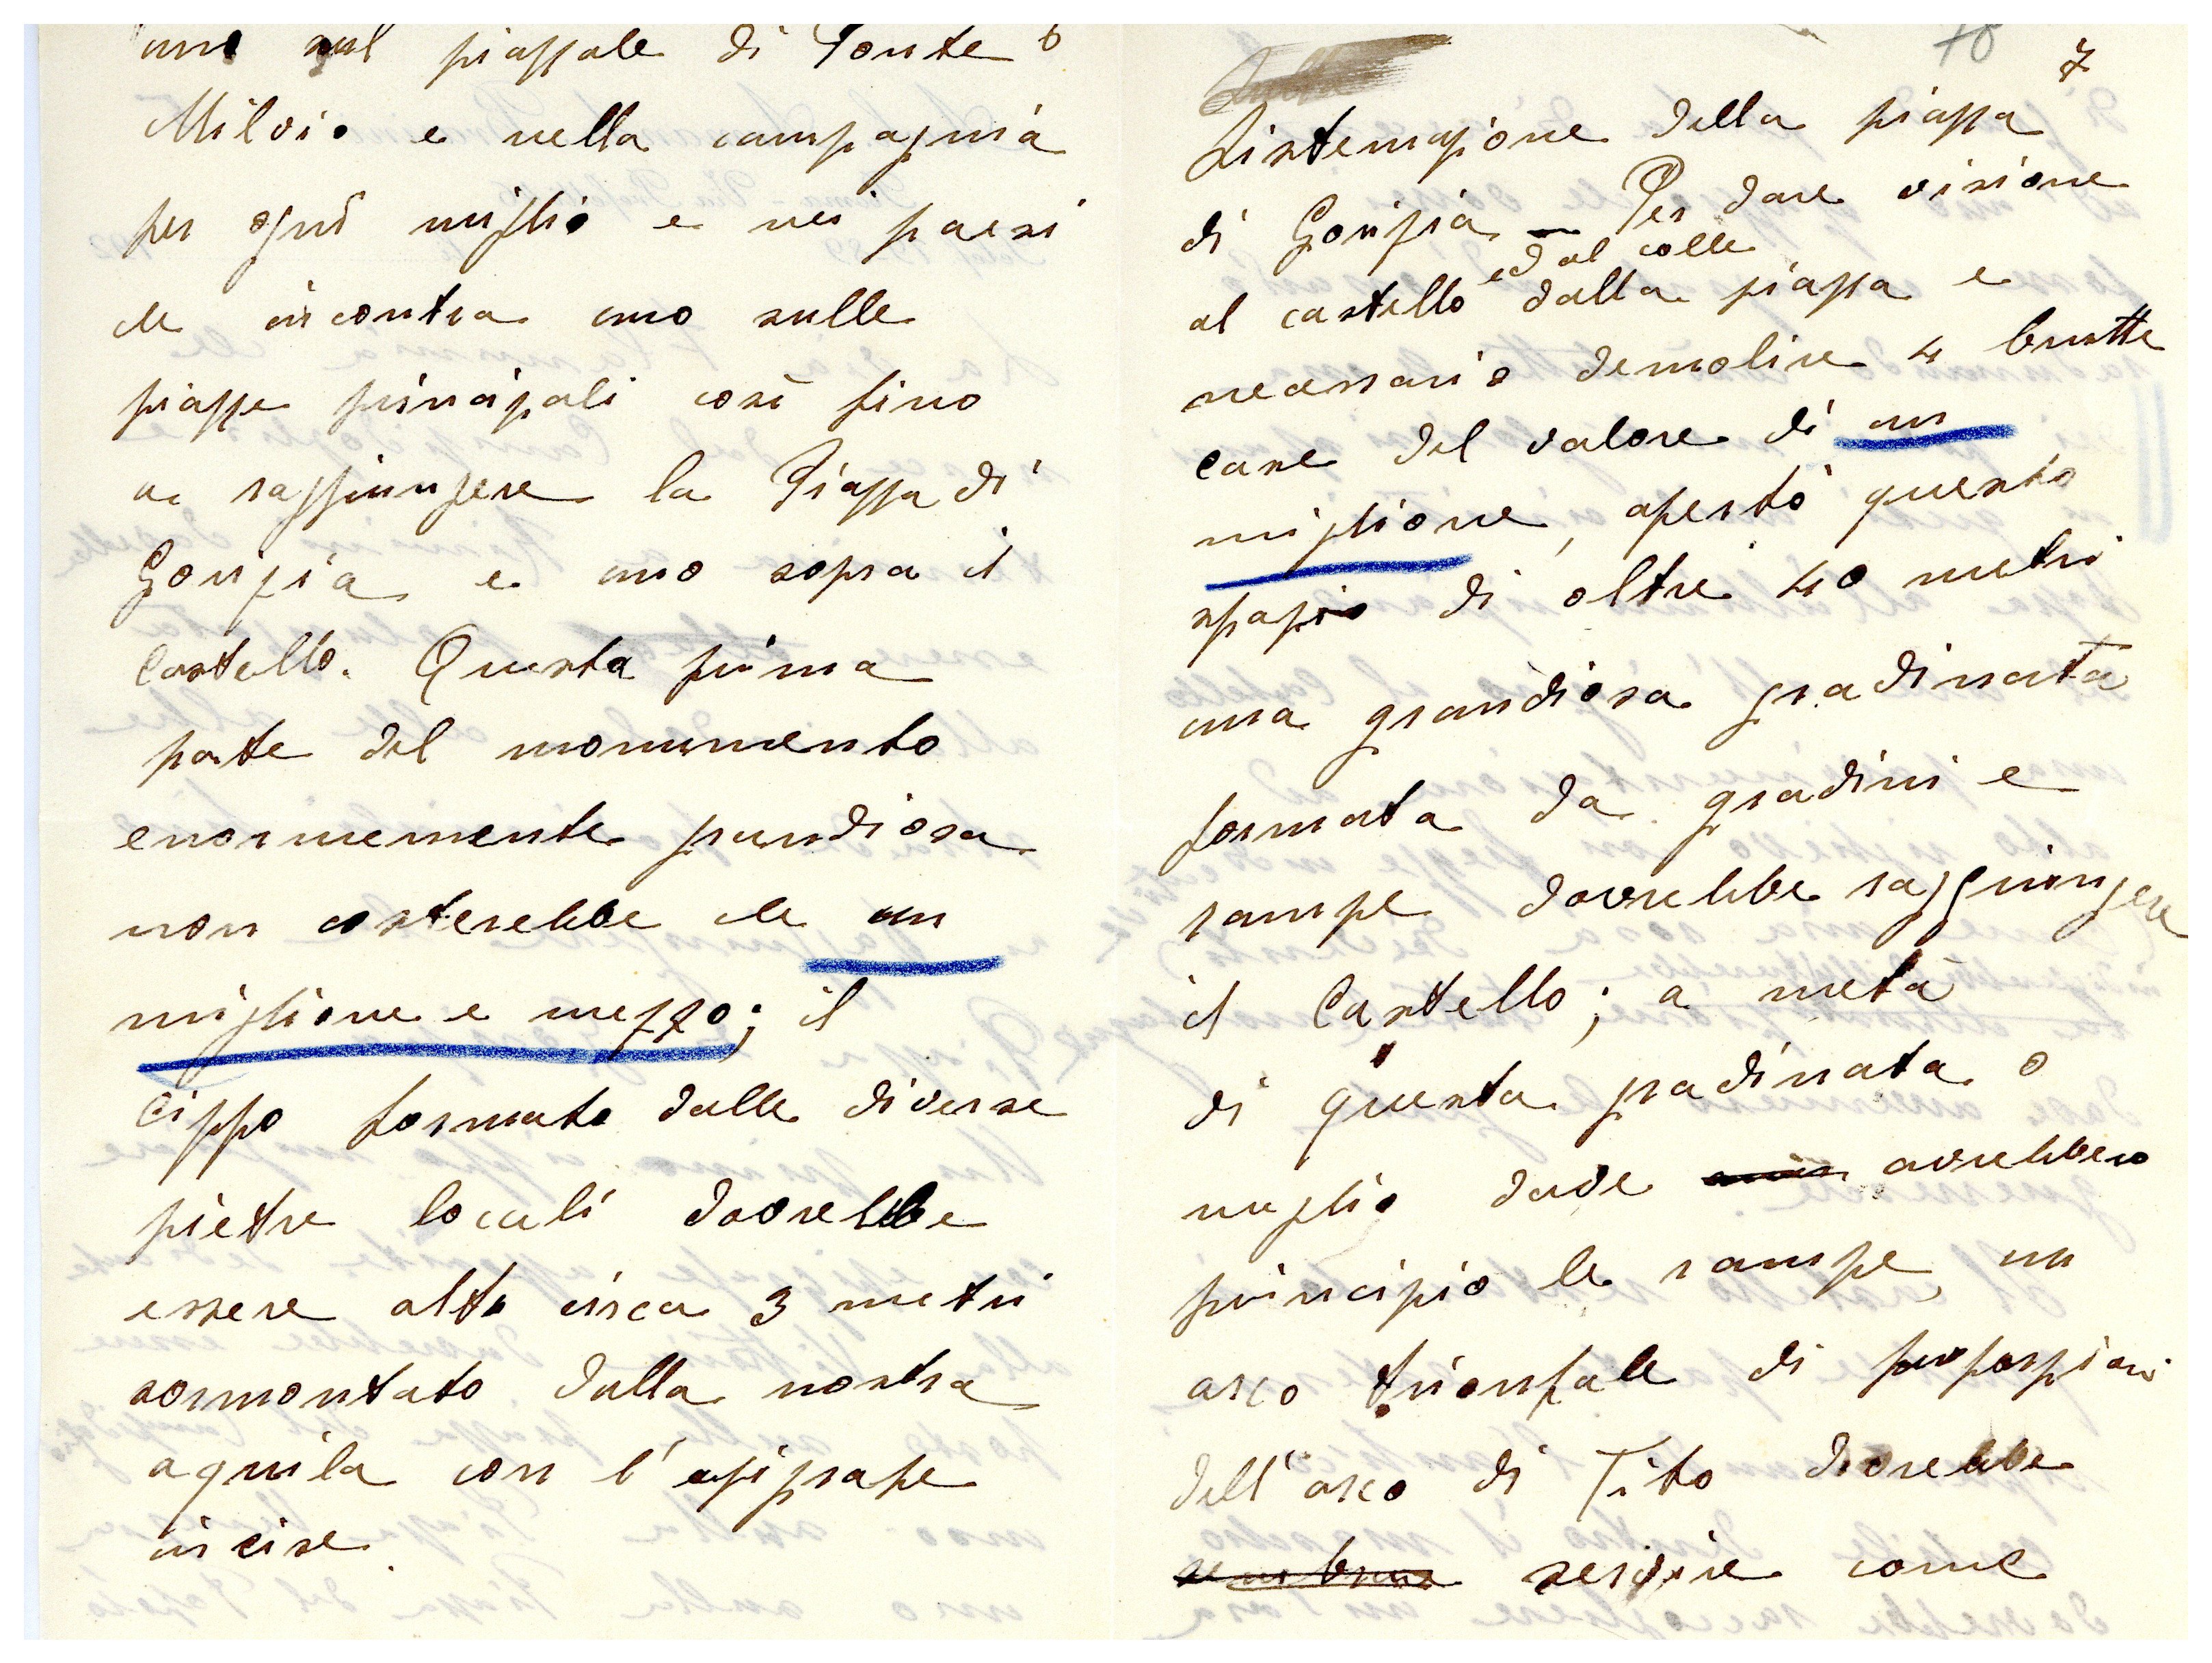 uno sul piazzale di Ponte 6
Milvio e nella campagna
per ogni miglio e nei paesi
che incontra uno sulle
piazze principali così fino
a raggiungere la Piazza di
Gorizia e uno sopra il
Castello. Questa prima
parte del monumento
enormemente grandiosa
non costerebbe che un
miglione e mezzo; il
Cippo formato dalle diverse
pietre locali dovrebbe
essere alto circa 3 metri
sormontato dalla nostra
aquila con l'epigrafe
incise.
78
7
Sistemazione della piazza
di Gorizia — Per dare visione
ed al colle
al castello dalla piazza e
necessario demolire 4 brutte
case del valore di un
miglione, aperto questo
spazio di oltre 40 metri
una grandiosa gradinata
formata da gradini e
rampe dovrebbe raggiungere
il Castello; a metà
di questa gradinata o
meglio dove avrebbero
principio le rampe, un
arco trionfale di proporzioni
dell'arco di Tito dovrebbe
sembrare servire come